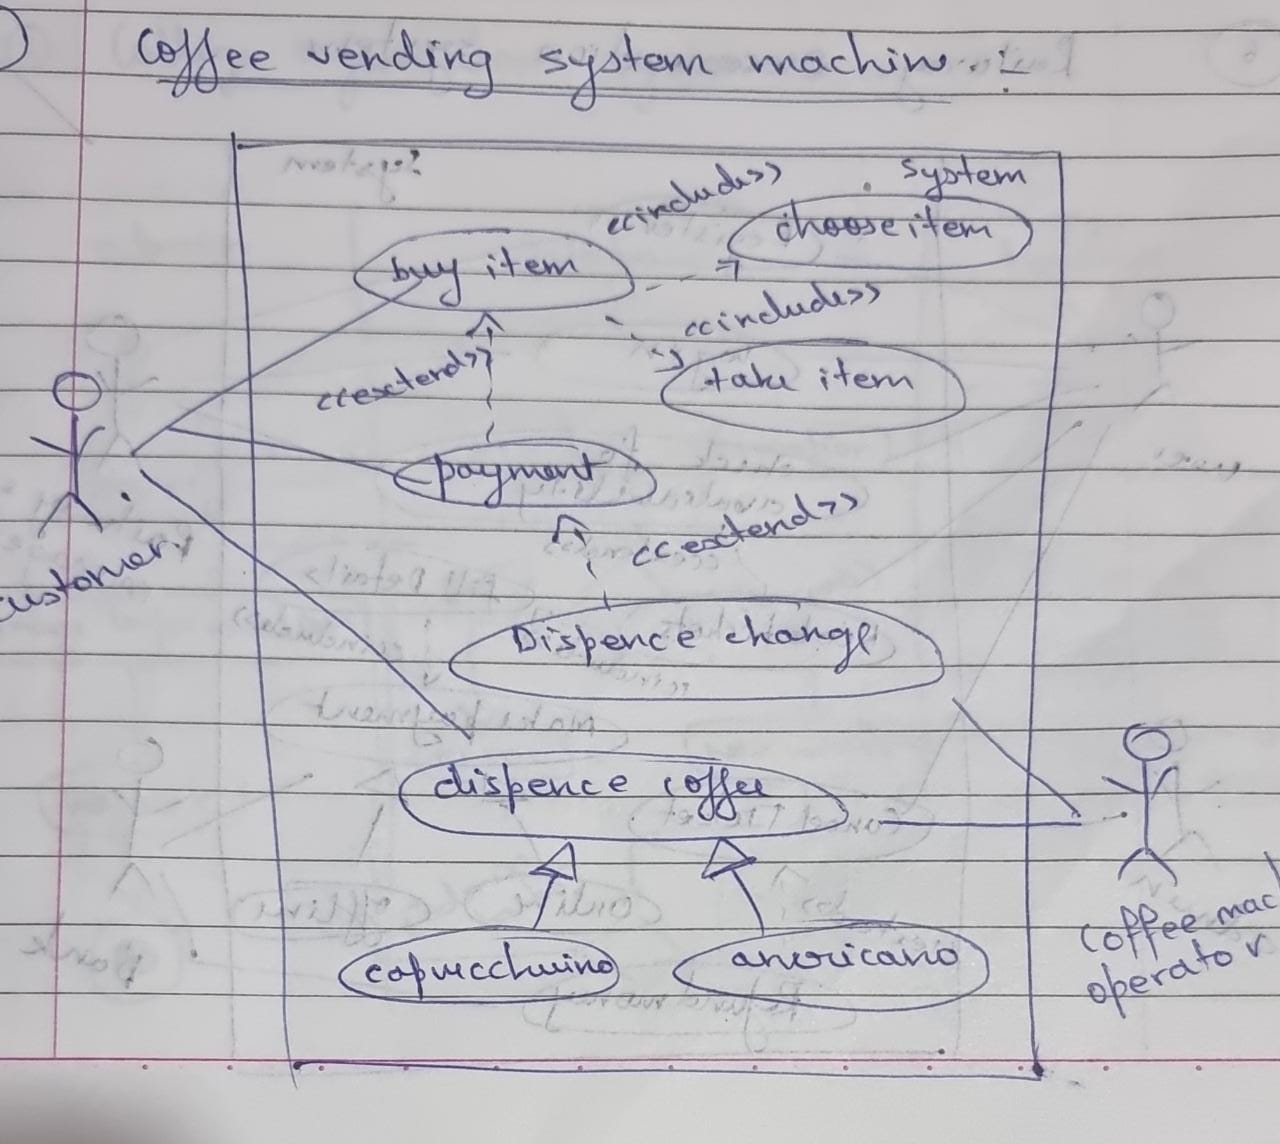 Coffee vending system machin. :-
system
<<include>>
choose item
buy item
<<include>>
take item
<<extend>>
payment
<<extend>>
customer.
Dispence change
dispence coffee
capucchuino
americano
coffee mac
operator